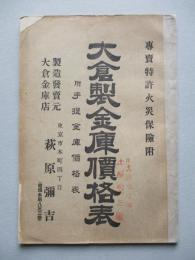 專賣特許火災保險附
大倉製金庫價格表
附手提金庫價格表
製造發賣元
大倉金庫店
東京市本町四丁目
萩原彌吉